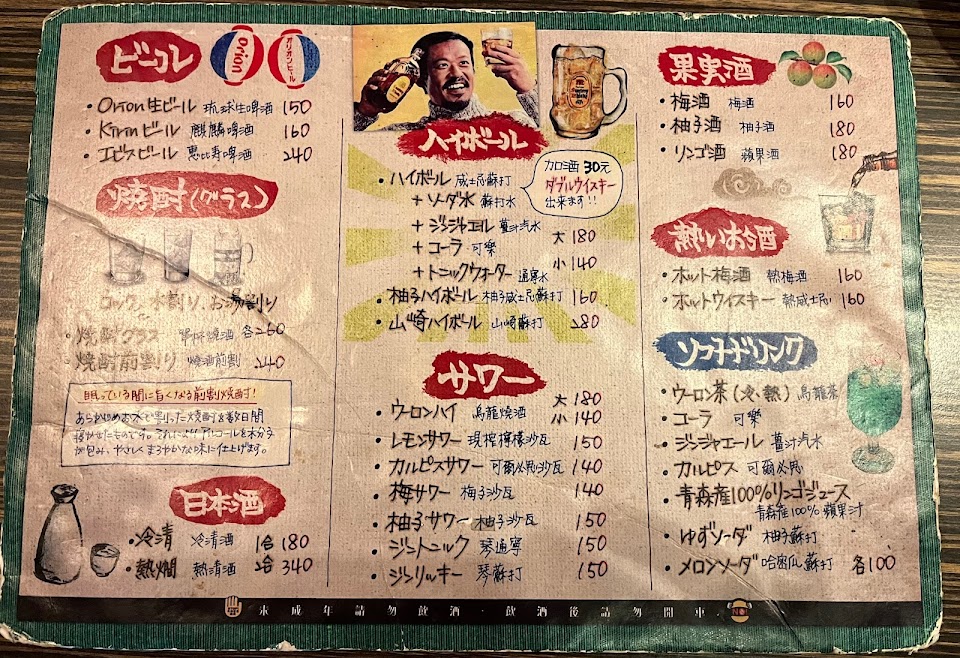 ビール
Orion
オリオンビール
・Orion生ビール 琉球生啤酒 150
・Kirinビール 麒麟啤酒 160
・エビスビール 惠比寿啤酒 240
焼酎(グラス)
ロック、水割り、お湯割り
・焼酎グラス 單杯燒酒 各260
・焼酎前割り 燒酒前割 240
眠っている間に旨くなる前割り焼酎!
あらかじめお水で割った焼酎を数日間
寝かせたものです。それによりアルコールを水分子
が包み、やさしくまろやかな味に仕上げます。
日本酒
・冷清 冷清酒 1合 180
・熱燗 熱清酒 2合 340
ハイボール
加酒 30元
ダブルウイスキー
出来ます!!
・ハイボール 威士忌蘇打
+ソーダ水 蘇打水
+ジンジャエール 薑汁汽水
+コーラ 可樂
+トニックウォーター 通寧水
大 180
小 140
・柚子ハイボール 柚子威士忌蘇打 160
・山崎ハイボール 山崎蘇打 280
サワー
・ウーロンハイ 烏龍燒酒 大 180
小 140
・レモンサワー 現榨檸檬沙瓦 150
・カルピスサワー 可爾必思沙瓦 140
・梅サワー 梅子沙瓦 140
・柚子サワー 柚子沙瓦 150
・ジントニック 琴通寧 150
・ジンリッキー 琴蘇打 150
果実酒
・梅酒 梅酒 160
・柚子酒 柚子酒 180
・リンゴ酒 蘋果酒 180
熱いお酒
・ホット梅酒 熱梅酒 160
・ホットウイスキー 熱威士忌 160
ソフトドリンク
・ウーロン茶(冷・熱) 烏龍茶
・コーラ 可樂
・ジンジャエール 薑汁汽水
・カルピス 可爾必思
・青森産100%リンゴジュース
青森產100%蘋果汁
・ゆずソーダ 柚子蘇打
・メロンソーダ 哈密瓜蘇打 各100
未成年請勿飲酒・飲酒後請勿開車
NO!